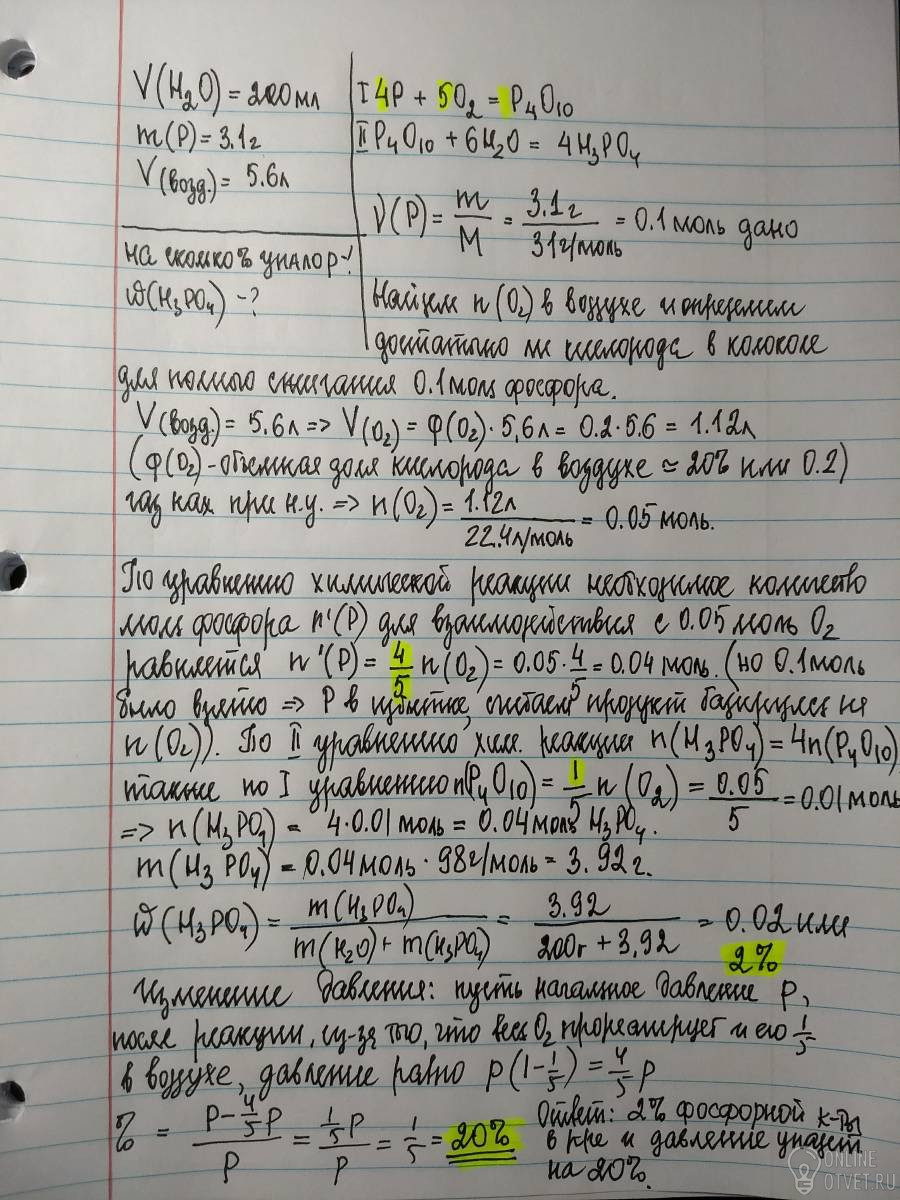 V(H₂O) = 200мл
m(P) = 3.1г
V(возд.) = 5.6л
на сколько % упало р-?
ω(H₃PO₄) -?
I 4P + 5O₂ = P₄O₁₀
II P₄O₁₀ + 6H₂O = 4H₃PO₄
ν(P) = m/M = 3.1г/31г/моль = 0.1 моль дано
Найдем n(O₂) в воздухе и определим
достаточно ли кислорода в колоколе
для полного сжигания 0.1 моль фосфора.
V(возд.) = 5.6л => V(O₂) = φ(O₂)·5,6л = 0.2·5.6 = 1.12л
(φ(O₂) - объемная доля кислорода в воздухе ≈ 20% или 0.2)
газ нах при н.у. => n(O₂) = 1.12л/22.4л/моль = 0.05 моль.
По уравнению химической реакции необходимое количество
моль фосфора n'(P) для взаимодействия с 0.05 моль O₂
равняется n'(P) = 4/5 n(O₂) = 0.05·4/5 = 0.04 моль. (но 0.1 моль
было взято => P в избытке, считаем продукт базируясь на
n(O₂)). По II уравнению хим. реакции n(H₃PO₄) = 4n(P₄O₁₀)
также по I уравнению n(P₄O₁₀) = 1/5 n(O₂) = 0.05/5 = 0.01 моль
=> n(H₃PO₄) = 4·0.01 моль = 0.04 моль H₃PO₄.
m(H₃PO₄) = 0.04 моль · 98г/моль = 3.92г.
ω(H₃PO₄) = m(H₃PO₄)/m(H₂O) + m(H₃PO₄) = 3.92/200г + 3,92 = 0.02 или
2%
Изменение давления: пусть начальное давление p,
после реакции, из-за того, что весь O₂ прореагирует и его 1/5
в воздухе, давление равно p(1-1/5) = 4/5 p
% = p - 4/5 p/p = 1/5 p/p = 1/5 = 20%
Ответ: 2% фосфорной к-ты
в р-ре и давление упадет
на 20%.
ONLINE
OTVET.RU